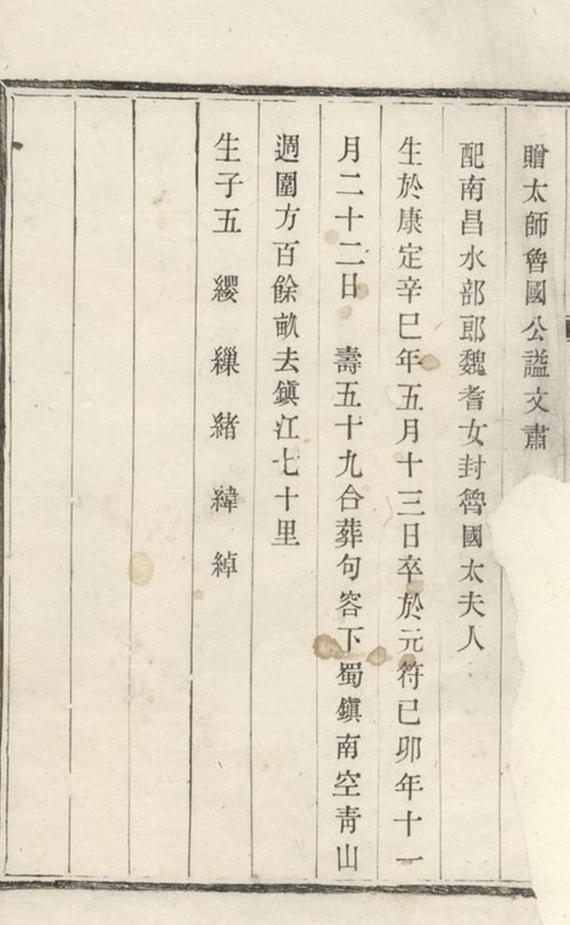 贈太師魯國公謚文肅
配南昌水部郎魏耆女封魯國太夫人
生於康定辛巳年五月十三日卒於元符己卯年十一
月二十二日 壽五十九合葬句容下蜀鎭南空青山
週圍方百餘畝去鎭江七十里
生子五 纓 纁 緒 緯 綽